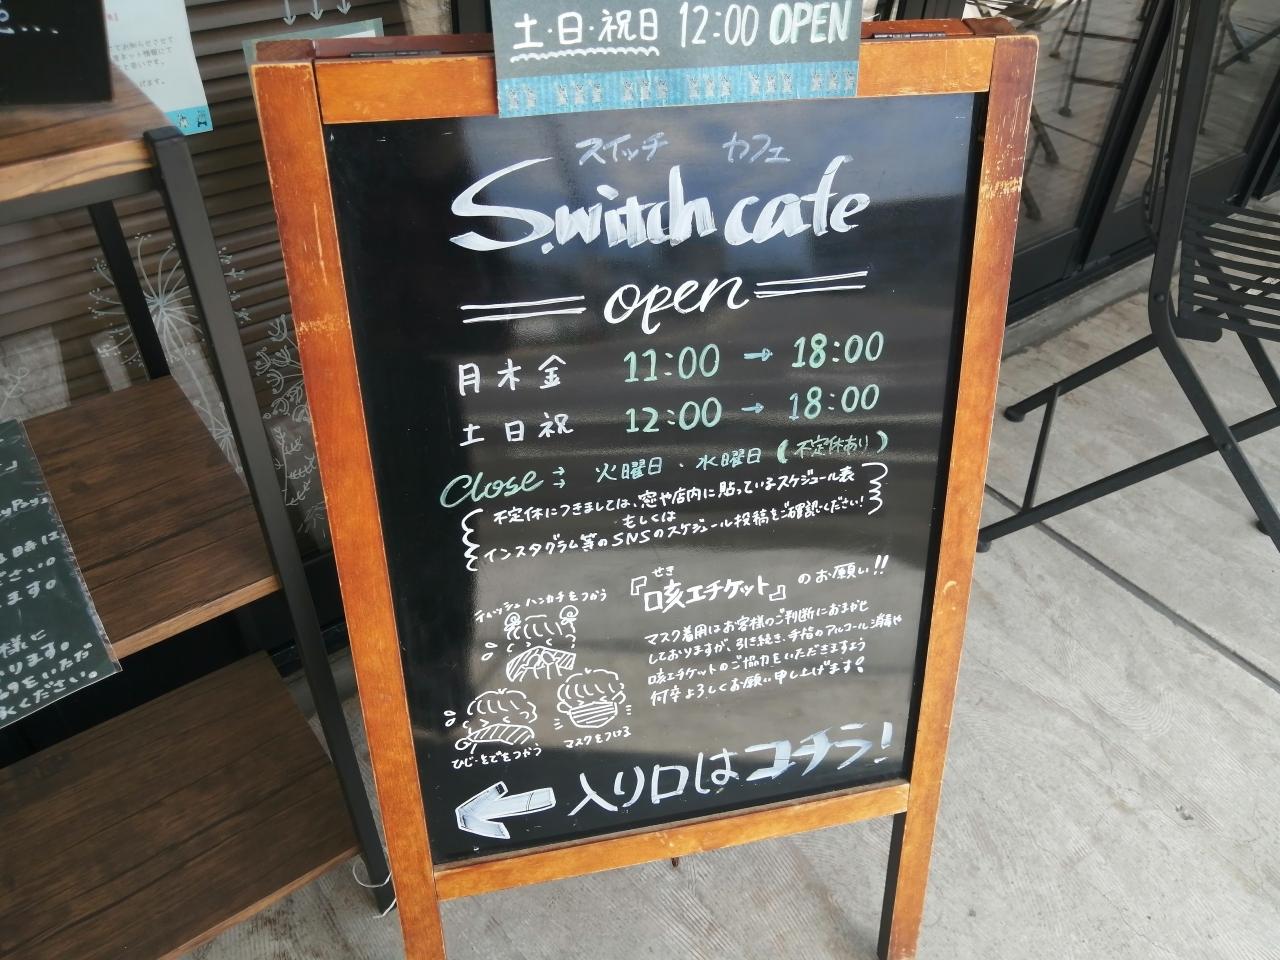 土・日・祝日 12:00 OPEN
スイッチ カフェ
Switch cafe
open
月 木 金 11:00 → 18:00
土 日 祝 12:00 → 18:00
Close → 火曜日・水曜日 (不定休あり)
不定休につきましては、窓や店内に貼っているスケジュール表
もしくは
インスタグラム等のSNSのスケジュール投稿をご確認ください!
せき
『咳エチケット』のお願い!!
マスク着用はお客様のご判断におまかせ
しておりますが、引き続き、手指のアルコール消毒や
咳エチケットのご協力をいただきますよう
何卒よろしくお願い申し上げます!
ティッシュ ハンカチをつかう
ひじ・そでをつかう
マスクをつける
← 入り口はコチラ!